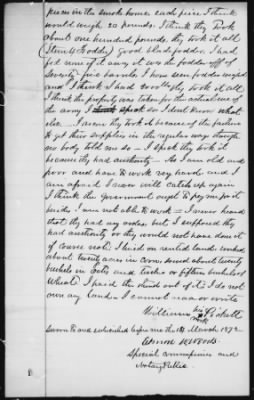 pieces in the smoke house each piece I think
would weigh 20 pounds. I think they took
about one hundred pounds, they took it all
(Item 4 Fodder) Good blade fodder. I had
fed none of it away it was the fodder off of
Seventy five barrels I have seen fodder weighed
and I think I had they took it all
I think the property was taken for the actual use of
the army I or I don't know what
else. I aver they took it because of the failure
to get their supplies in the regular way though
no body told me so — I speck they took it
because they had authority — As I am old and
poor and have to work very hard and I
am afraid I never will catch up again
I think the government ought to pay me for it
besides I am not able to work — I never heard
that they had any orders but I supposed they
had authority or they would not have done it
of course not. I lived on rented land worked
about twenty acres in corn, sowed about twenty
bushels in Oats and twelve or fifteen bushels of
Wheat. I paid the third out of it. I do not
own any land. I cannot read or write
William his Pickett
mark
Sworn to and subscribed before me the March 1872
Special commissioner and
Notary Public